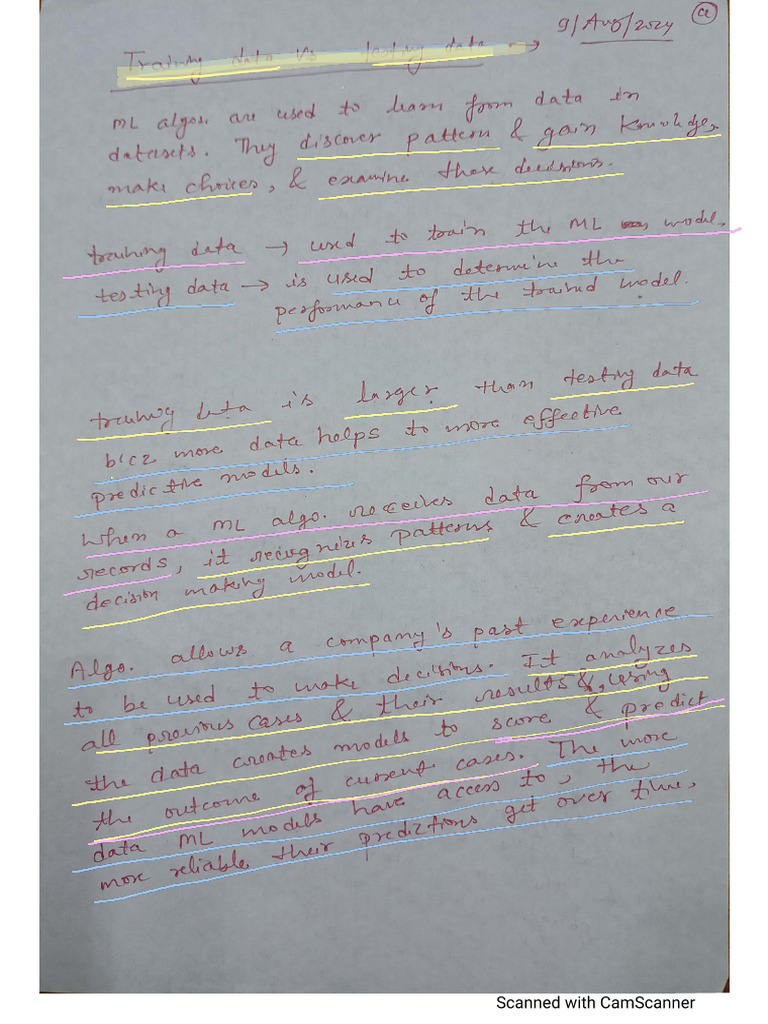 9/Aug/2024
a
Training data Vs testing data →
ML algos. are used to learn from data in
datasets. They discover pattern & gain knowledge,
make choices, & examine those decisions.
training data → used to train the ML model.
testing data → is used to determine the
performance of the trained model.
training data is larger than testing data
b'cz more data helps to more effective
predictive models.
When a ML algo. receives data from our
records, it recognizes patterns & creates a
decision making model.
Algo. allows a company's past experience
to be used to make decisions. It analyzes
all previous cases & their results &, using
the data creates models to score & predict
the outcome of current cases. The more
data ML models have access to, the
more reliable their predictions get over time.
Scanned with CamScanner